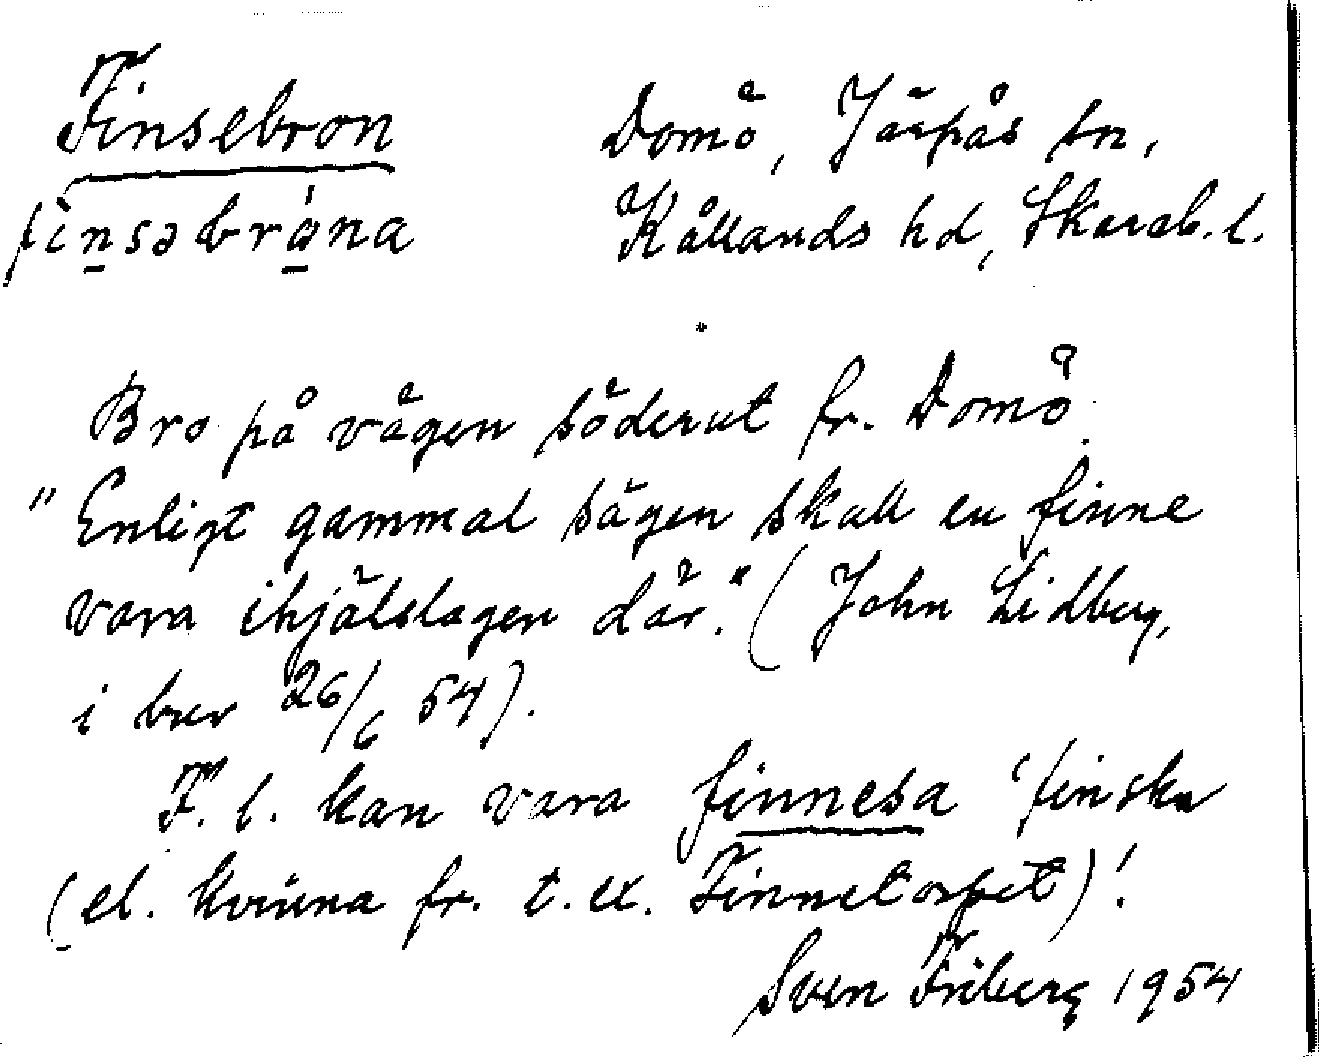 Finsebron Domö, Järpås sn,
finsəbrǫna Kållands hd, Skarab. l.
Bro på vägen söderut fr. Domö.
"Enligt gammal sägen skall en finne
vara ihjälslagen där." (John Lidberg,
i brev 26/6 54).
F. l. kan vara finnesa 'finska
(el. kvinna fr. t. ex. Finnetorpet)'.
Sven Friberg 1954